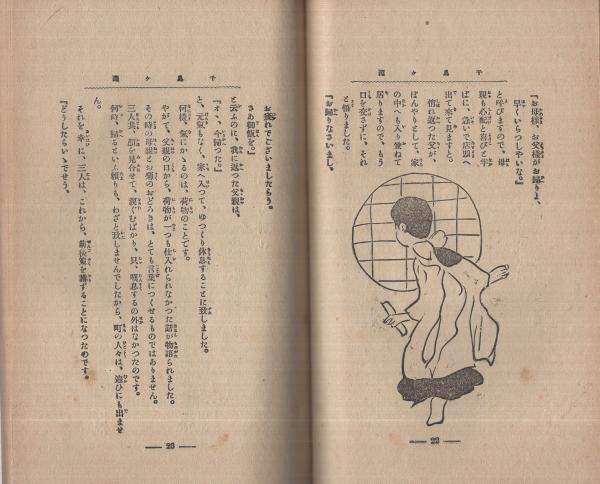 千鳥ヶ淵
『お母樣、お父樣がお歸りよ、
早くいらつしやいな。』
と呼びますので、母
親も心配と喜びと半
ばに、急いで店頭へ
出て來て見ますと。
惰れ返つた父が、
ぼんやりとして、家
の中へも入り兼ねて
居りますので、もう
口を交さずに、それ
と悟りました。
『お歸りなさいまし、
22
千鳥ヶ淵
お疲れでございましたらう。
さあ御飯を。』
と云ふのに、我に返つた父親は、
『オヽ、今歸つた。』
と、元氣もなく、家へ入つて、ゆつくり休息することに致しました。
何樣、氣にかゝるのは、荷物のことです。
やがて、父親の口から、荷物が一つも仕入れられなかつた話が物語られました。
その時の母親とお菊のおどろきは、とても言葉につくせるものではありません。
三人共、顏を見合せて、淚ぐむばかり、只、嘆息するの外はなかつたのです。
何時、歸るといふ頼りも、わざと致しませんでしたから、町の人々は、迎ひにも出ませ
ん。
それを幸に、三人は、これから、前後策を講ずることになつたのです。
『どうしたらいゝでせう。
23